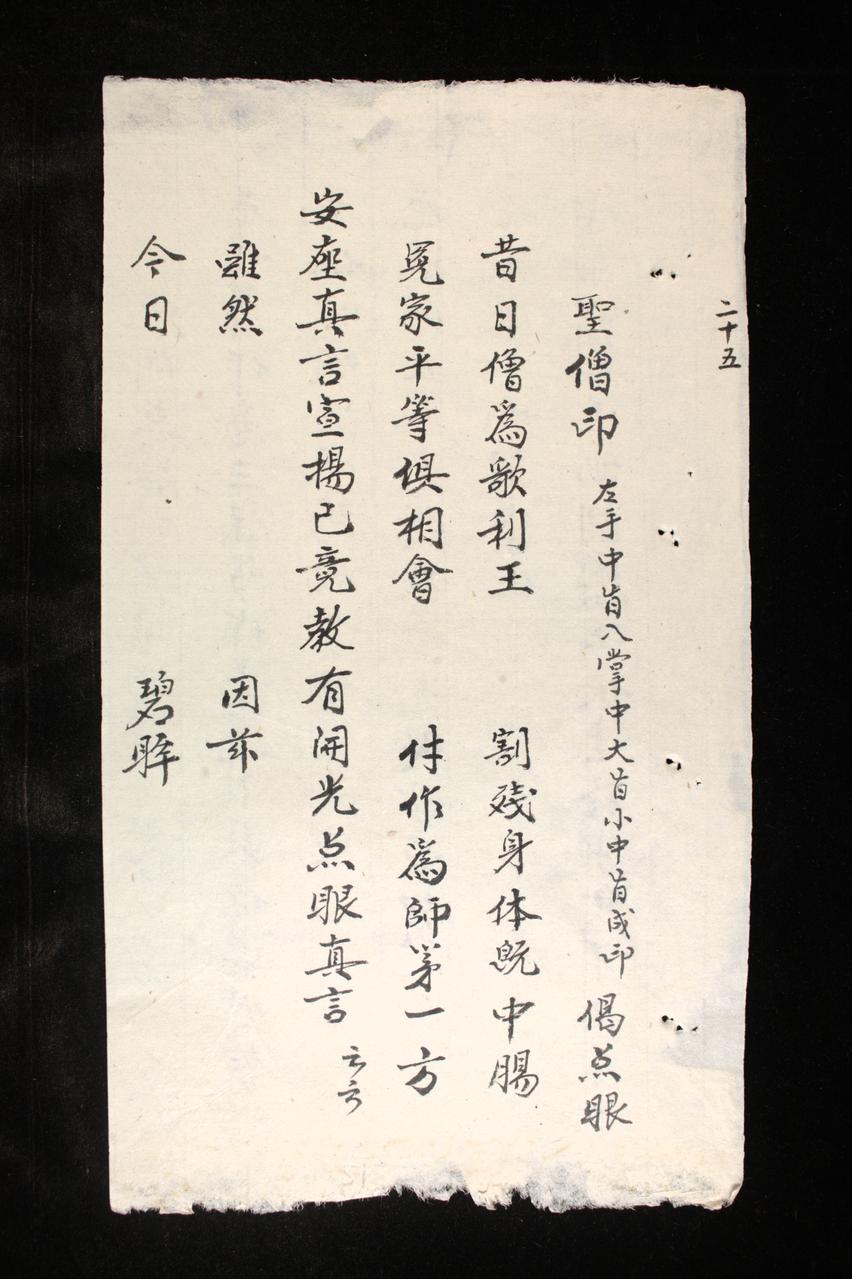 二十五
聖僧印 左手中指入掌中大指小中指成印 偈点眼
昔日僧爲歌利王 割残身体既中腸
冤家平等俱相會 付作爲師第一方
安座真言宣揚已竟教有開光点眼真言 云云
雖然 因茲
今日 碧眸